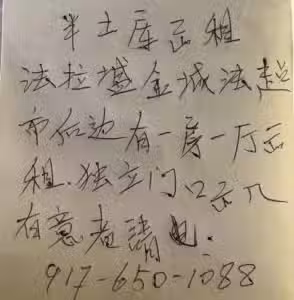 半土库出租
法拉盛金城法超
市后边有一房一厅出
租.独立门口出入
有意者請电.
917-650-1088